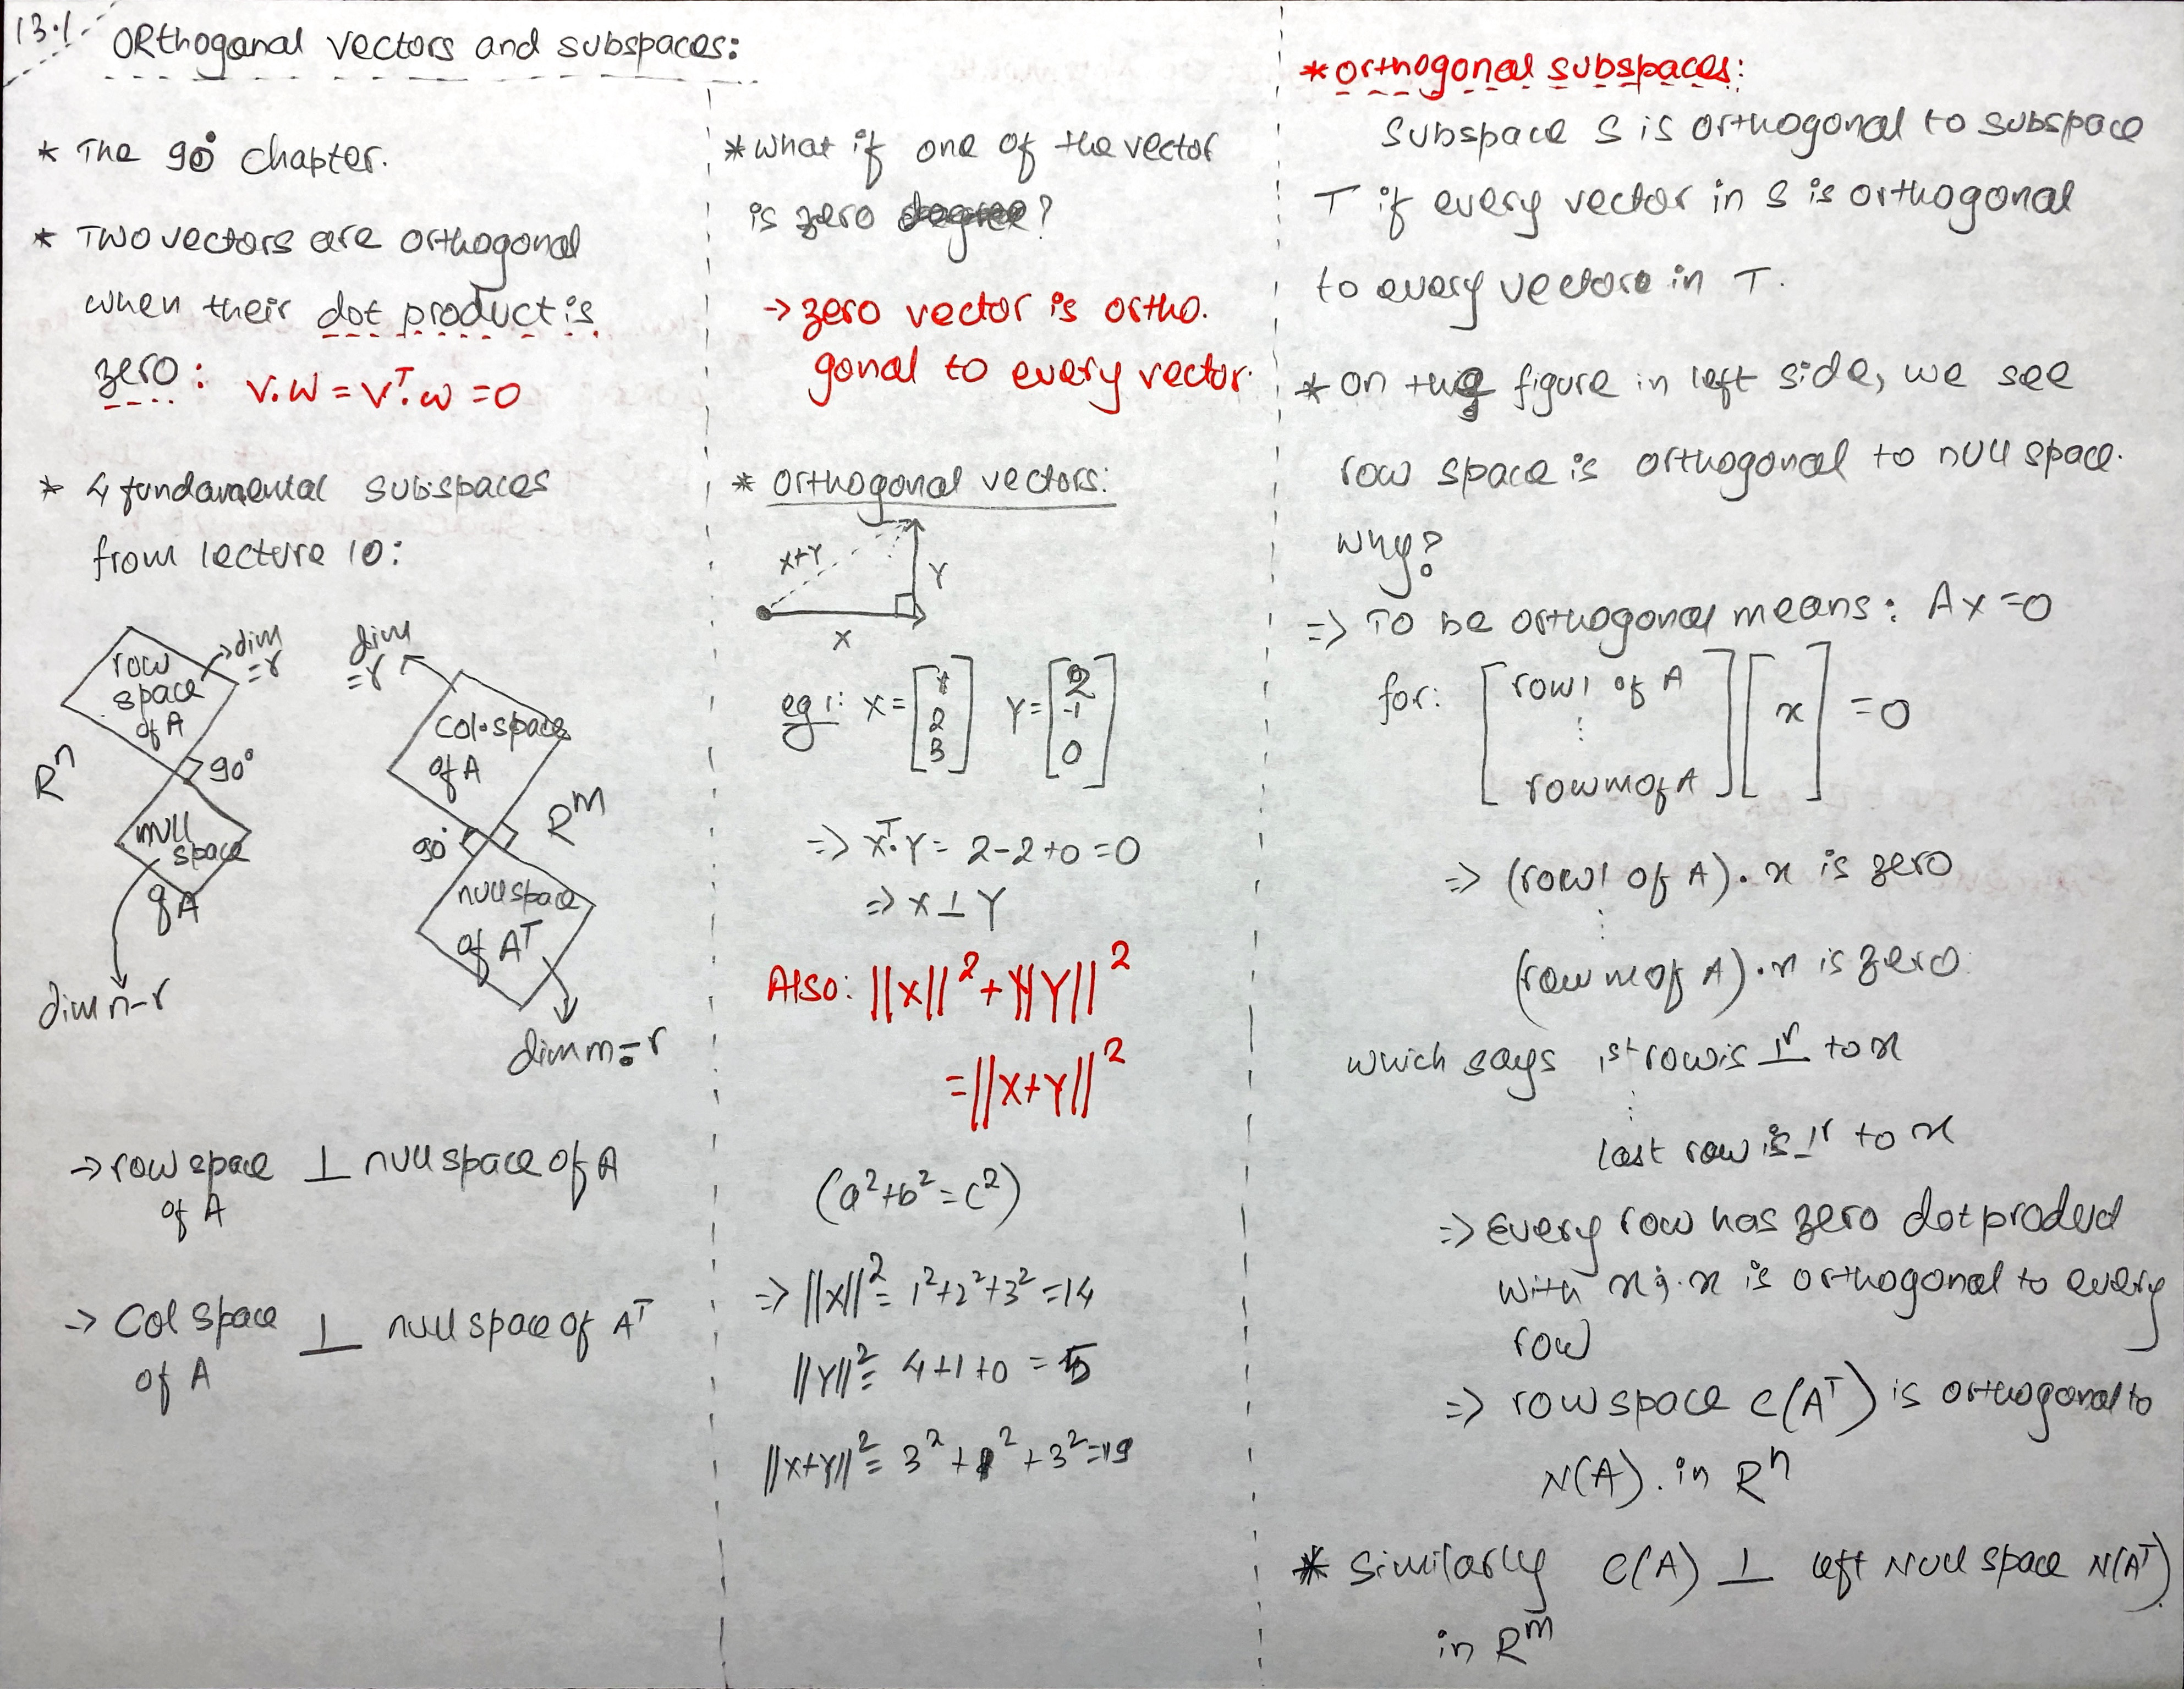 13.1
ORthogonal vectors and subspaces:
* The 90° chapter.
* Two vectors are orthogonal
when their dot product is
zero: V.W = Vᵀ.W = 0
* 4 fundamental subspaces
from lecture 10:
row
space
of A
dim
=r
Rⁿ
90°
null
space
of A
dim n-r
dim
=r
col. space
of A
Rᵐ
90°
null space
of Aᵀ
dim m-r
→ row space ⊥ null space of A
of A
→ Col space ⊥ null space of Aᵀ
of A
* what if one of the vector
is zero ?
→ zero vector is ortho.
gonal to every vector.
* orthogonal vectors:
X+Y
Y
X
eg 1: X = [1 2 3] Y = [2 -1 0]
=> Xᵀ.Y = 2-2+0 = 0
=> X ⊥ Y
Also: ||X||² + ||Y||²
= ||X+Y||²
(a²+b²=c²)
=> ||X||² = 1²+2²+3² = 14
||Y||² = 4+1+0 = 5
||X+Y||² = 3²+1²+3² = 19
* orthogonal subspaces:
Subspace S is orthogonal to subspace
T if every vector in S is orthogonal
to every vectors in T.
* on the figure in left side, we see
row space is orthogonal to null space.
why?
=> To be orthogonal means: AX = 0
for: [row 1 of A ⋮ row m of A] [x] = 0
=> (row 1 of A). x is zero
⋮
(row m of A). x is zero
which says 1st row is ⊥r to x
⋮
last row is ⊥r to x
=> Every row has zero dot product
with x; x is orthogonal to every
row
=> row space C(Aᵀ) is orthogonal to
N(A). in Rⁿ
* Similarly C(A) ⊥ left Null space N(Aᵀ).
in Rᵐ